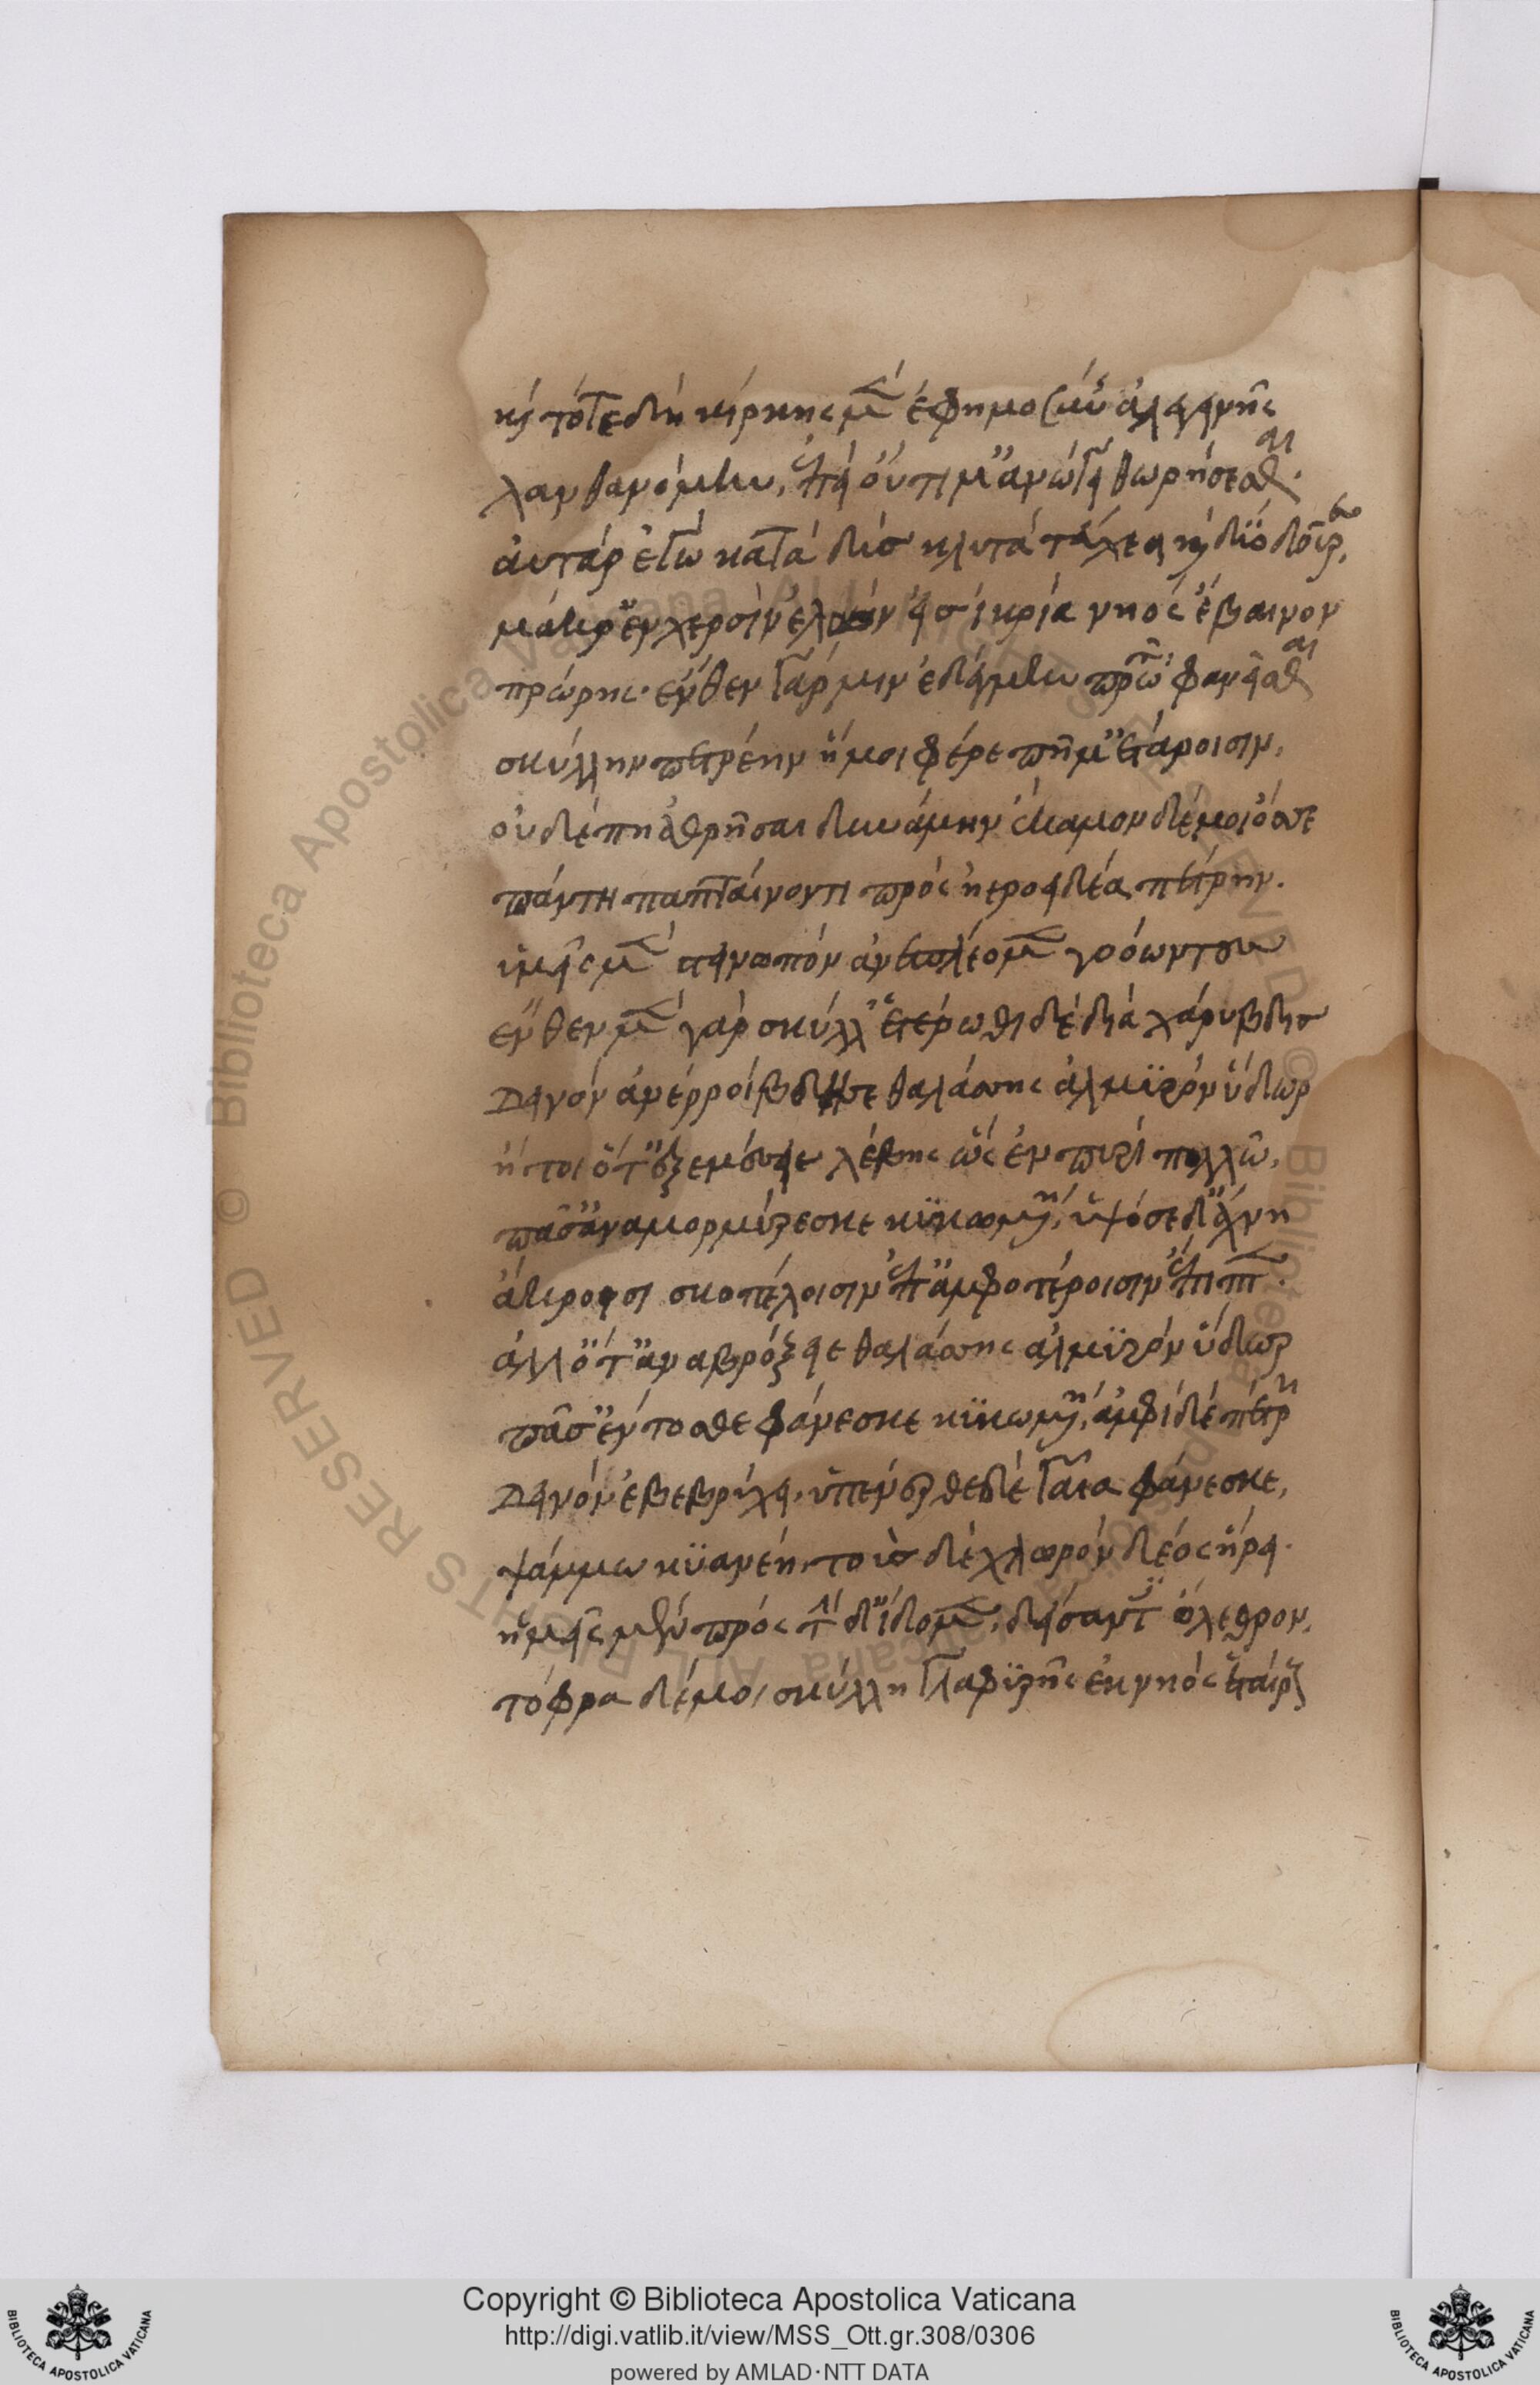 καὶ τότε δὴ κίρκης μὲν ἐφημοσύν ἀλεγεινῆς
λανθανόμην, ἐπεὶ οὔτι μ' ἀνώγει θωρήσεσθαι.
αὐτὰρ ἐγὼ καταδὺσ κλυτὰ τεύχεα καὶ δύο δοῦρε,
μάκρ' ἐν χερσὶν ἑλὼν εἰσ ἴκρια νηὸς ἔβαινον
πρώρης. ἔνθεν γάρ μιν ἐδέγμην πρῶτα φανεῖσθαι
σκύλλην πετρέην ἥ μοι φέρε πῆμ' ἑτάροισιν,
οὐδέ πη ἀθρῆσαι δυνάμην ἔκαμον δέ μοι ὄσσε
πάντη παπταίνοντι πρὸς ἠεροειδέα πέτρην.
ἡμεῖς μὲν στεινωπὸν ἀνεπλέομεν γοόωντεσ
ἔνθεν μὲν γὰρ σκύλλ' ἑτέρωθι δὲ δῖα χάρυβδισ
δεινὸν ἀνερροίβδησε θαλάσσης ἁλμυρὸν ὕδωρ
ἤτοι ὅτ' ἐξεμέσειε λέβης ὣς ἐν πυρὶ πολλῶ,
πᾶσ' ἀναμορμύρεσκε κυκωμένη, ὑψόσε δ' ἄχνη
ἄκροισι σκοπέλοισιν ἐπ' ἀμφοτέροισιν ἔπιπτεν.
ἀλλ' ὅτ' ἀναβρόξειε θαλάσσης ἁλμυρὸν ὕδωρ
πᾶσ' ἔντοσθε φάνεσκε κυκωμένη, ἀμφὶ δὲ πέτρη
δεινὸν ἐβεβρύχει. ὑπένερθε δὲ γαῖα φάνεσκε,
ψάμμω κυανέη, τοὺσ δὲ χλωρὸν δέος ἥρει.
ἡμεῖς μὲν πρὸς τὴν δ' ἴδομεν, δείσαντες ὄλεθρον,
τόφρα δέ μοι σκύλλη γλαφυρῆς ἐκ νηὸς ἑταίρους
Copyright © Biblioteca Apostolica Vaticana
http://digi.vatlib.it/view/MSS_Ott.gr.308/0306
powered by AMLAD·NTT DATA